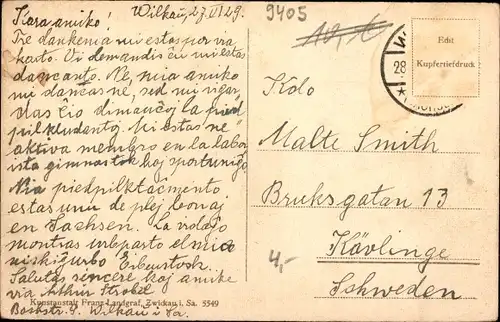 Wilkau, 27.VI.29.
Kara amiko!
Tre dankema mi estas por via
karto. Vi demandis ĉu mi estas
dancanto. Ne, mia amiko
mi dancas ne, sed mi vigar
das ĉio dimanĉoj la pied
pilkludanto. Mi estas ne
aktiva membro en la labor
ista gimnastok kaj sportunigo
Mia piedpilktaĉmento
estas unu de plej bonaj
en Sachsen. La vidaĵo
montras urbparto el mia
naskiĝurbo Eibenstock.
Salutas sincere kaj amike
via Arthur Strobel
Bockstr. 9. Wilkau i Sa.
Kunstanstalt Franz Landgraf, Zwickau i. Sa. 5549
9405
28
Edit
Kupfertiefdruck
K-lo
Malte Smith
Bruksgatan 13
Kävlinge
Schweden
4,-